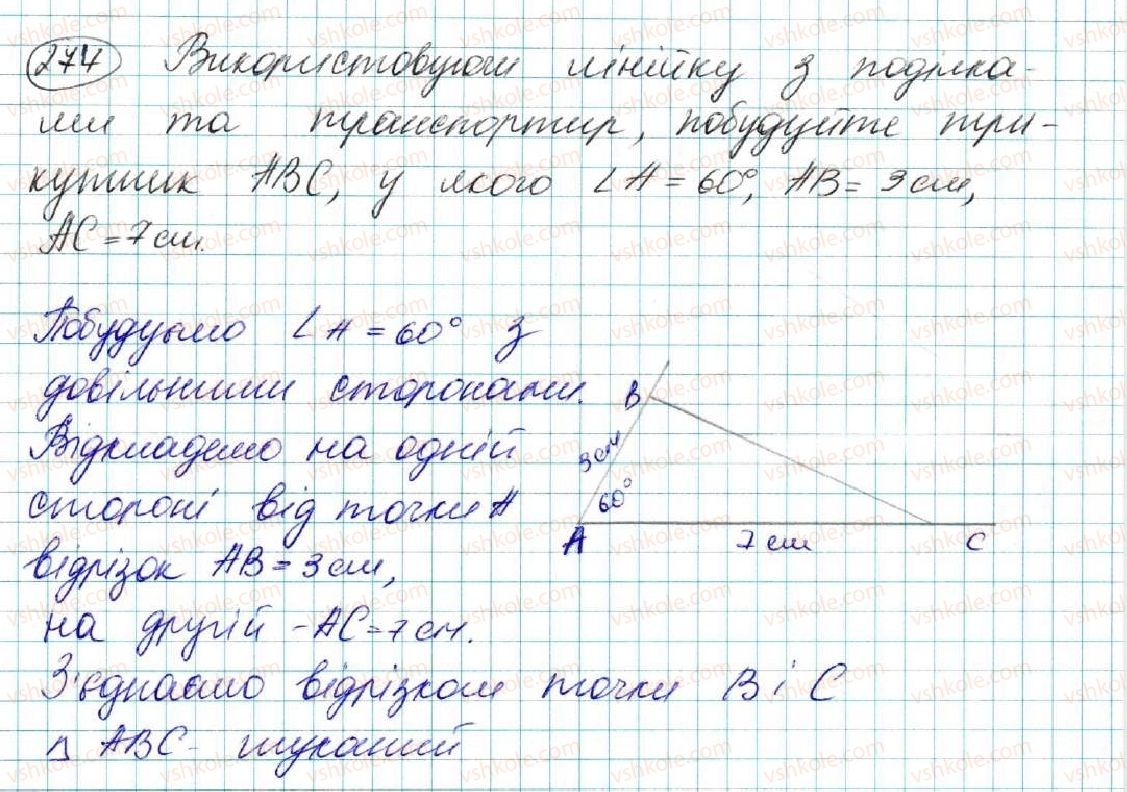 274 Використовуючи лінійку з поділка-
ми та транспортир, побудуйте три-
кутник ABC, у якого ∠A = 60°, AB = 3 см,
AC = 7 см.
Побудуємо ∠A = 60° з
довільними сторонами.
Відкладемо на одній
стороні від точки A
відрізок AB = 3 см,
на другій - AC = 7 см.
З'єднаємо відрізком точки B і C
Δ ABC - шуканий
B
3 см
60°
A
7 см
C